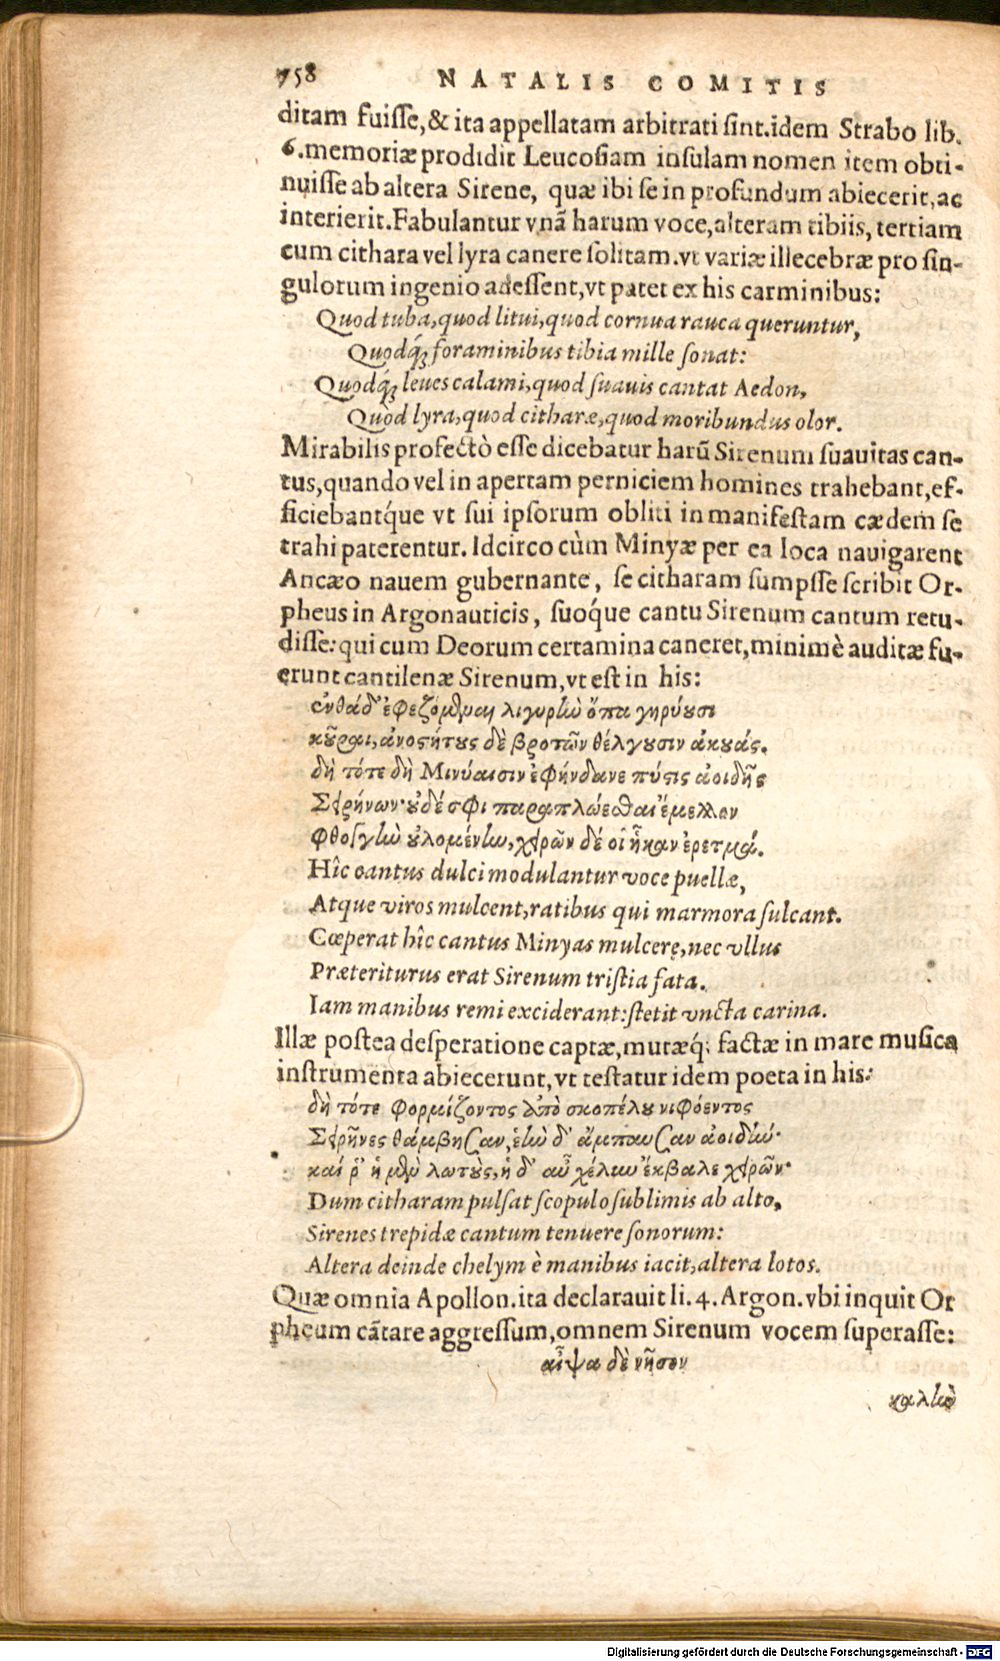 758 NATALIS COMITIS
ditam fuisse,& ita appellatam arbitrati sint.idem Strabo lib.
6.memoriæ prodidit Leucosiam insulam nomen item obti-
nuisse ab altera Sirene, quæ ibi se in profundum abiecerit,ac
interierit.Fabulantur vnã harum voce,alteram tibiis, tertiam
cum cithara vel lyra canere solitam.vt variæ illecebræ pro sin-
gulorum ingenio adessent,vt patet ex his carminibus:
Quod tuba,quod litui,quod cornua rauca queruntur,
Quodq́; foraminibus tibia mille sonat:
Quodq́; leues calami,quod suauis cantat Aedon,
Quod lyra,quod citharæ,quod moribundus olor.
Mirabilis profectò esse dicebatur harũ Sirenum suauitas can-
tus,quando vel in apertam perniciem homines trahebant,ef-
ficiebantq́ue vt sui ipsorum obliti in manifestam cædem se
trahi paterentur. Idcirco cùm Minyæ per ea loca nauigarent
Ancæo nauem gubernante, se citharam sumpsse scribit Or-
pheus in Argonauticis, suoq́ue cantu Sirenum cantum retu-
disse: qui cum Deorum certamina caneret,minimè auditæ fu-
erunt cantilenæ Sirenum,vt est in his:
ἐνθάδ' ἐφεζόμεναι λιγυρὴν ὄπα γηρύουσι
κοῦραι,ἀνοστήτους δὲ βροτῶν θέλγουσιν ἀκουάς.
δὴ τότε δὴ Μινύαισιν ἐφήνδανε πύστις ἀοιδῆς
Σειρήνων· οὐδέ σφι παραπλώεσθαι ἔμελλον
φθογγὴν οὐλομένην,χειρῶν δέ οἱ ἧκαν ἐρετμά.
Hîc cantus dulci modulantur voce puellæ,
Atque viros mulcent,ratibus qui marmora sulcant.
Cœperat hîc cantus Minyas mulcere,nec vllus
Præteriturus erat Sirenum tristia fata.
Iam manibus remi exciderant:stetit vncta carina.
Illæ postea desperatione captæ,mutæq́; factæ in mare musica
instrumenta abiecerunt,vt testatur idem poeta in his:
δὴ τότε φορμίζοντος ἀπὸ σκοπέλου νιφόεντος
Σειρῆνες θάμβησαν,ἑὴν δ' ἄμπαυσαν ἀοιδήν·
καί ῥ' ἡ μὲν λωτοὺς,ἡ δ' αὖ χέλυν ἔκβαλε χειρῶν·
Dum citharam pulsat scopulo sublimis ab alto,
Sirenes trepidæ cantum tenuere sonorum:
Altera deinde chelym è manibus iacit,altera lotos.
Quæ omnia Apollon.ita declarauit li. 4. Argon. vbi inquit Or
pheum cãtare aggressum,omnem Sirenum vocem superasse:
αἶψα δὲ νῆσον
καλὴν
Digitalisierung gefördert durch die Deutsche Forschungsgemeinschaft - DFG